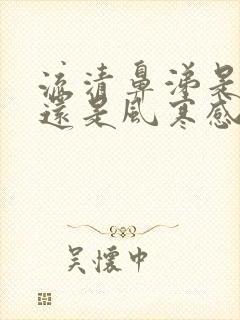 流清鼻涕是
還是風寒感
吴懷中